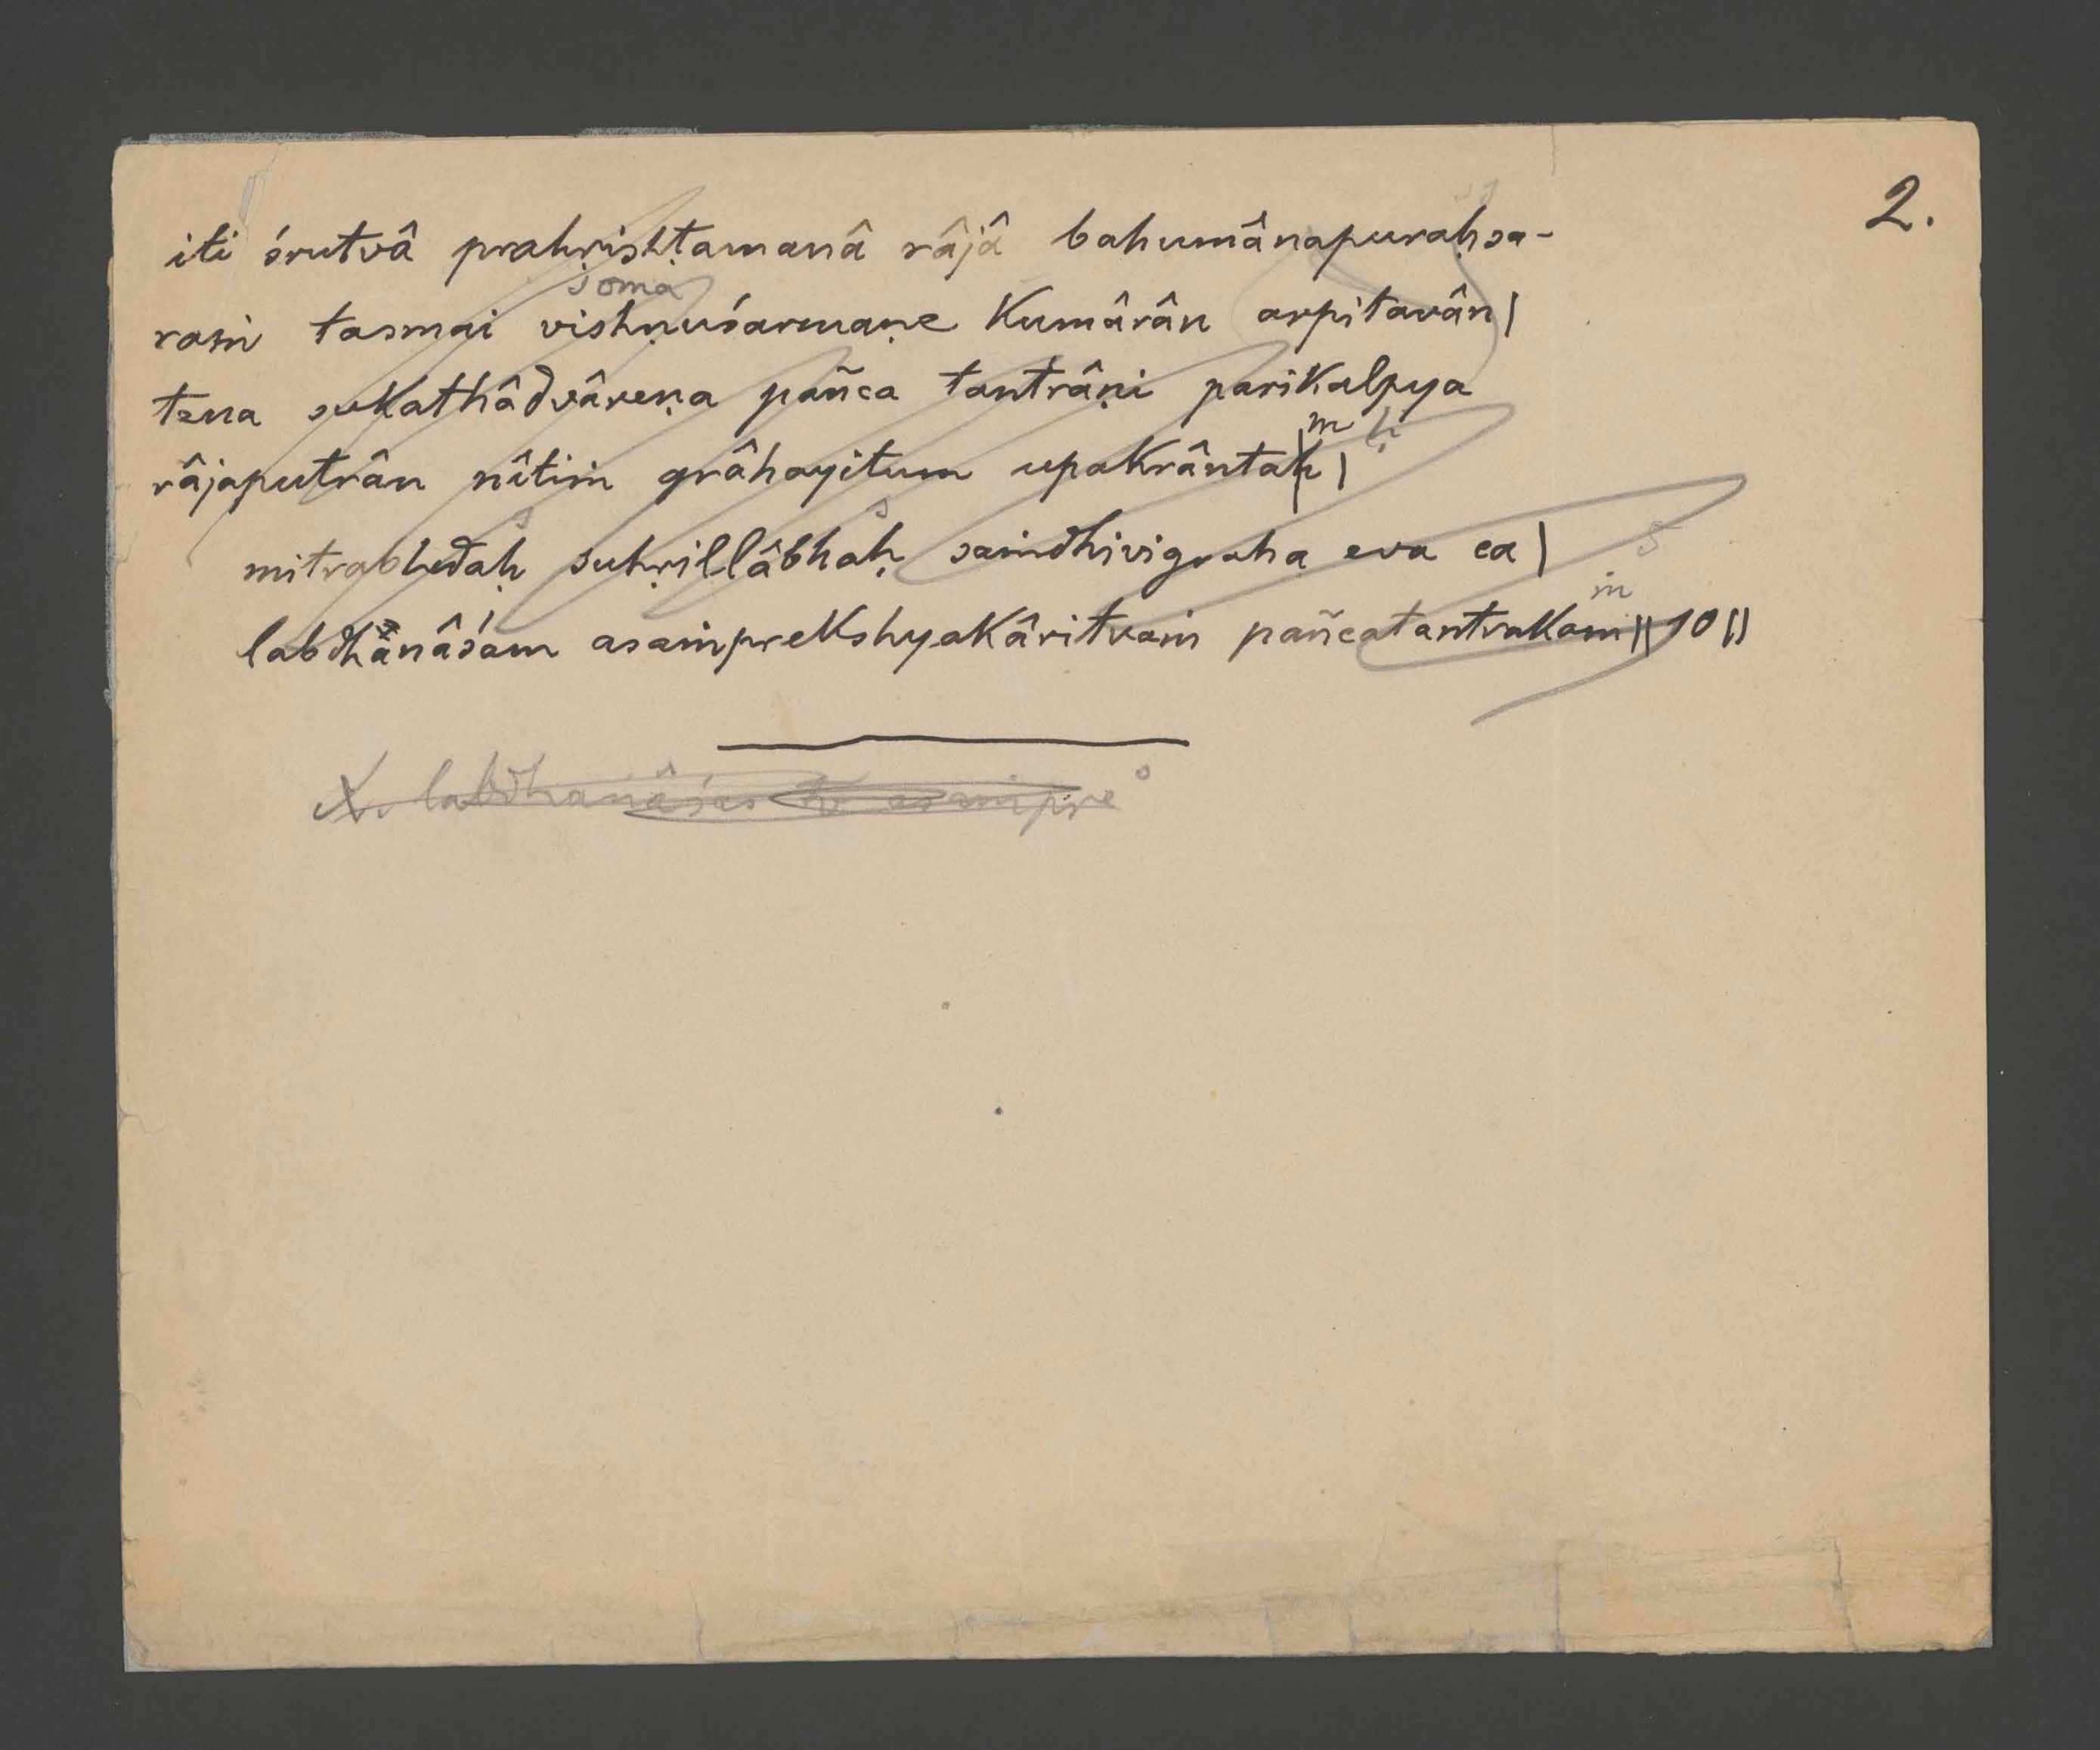 2.
iti śrutvâ prahṛishṭamanâ râjâ bahumânapuraḥsa-
soma
raṁ tasmai vishṇuśarmaṇe kumârân arpitavân |
tena sukathâdvâreṇa pañca tantrâṇi parikalpya
m ḥ
râjaputrân nîtiṁ grâhayitum upakrântaḥ |
s s
mitrabhedaḥ suhṛillâbhaḥ saṁdhivigraha eva ca | s
ṁ
labdhanâśam asaṁprekshyakâritvaṁ pañcatantrakam || 10 ||
X. labdhanâśas tv asaṁpre°